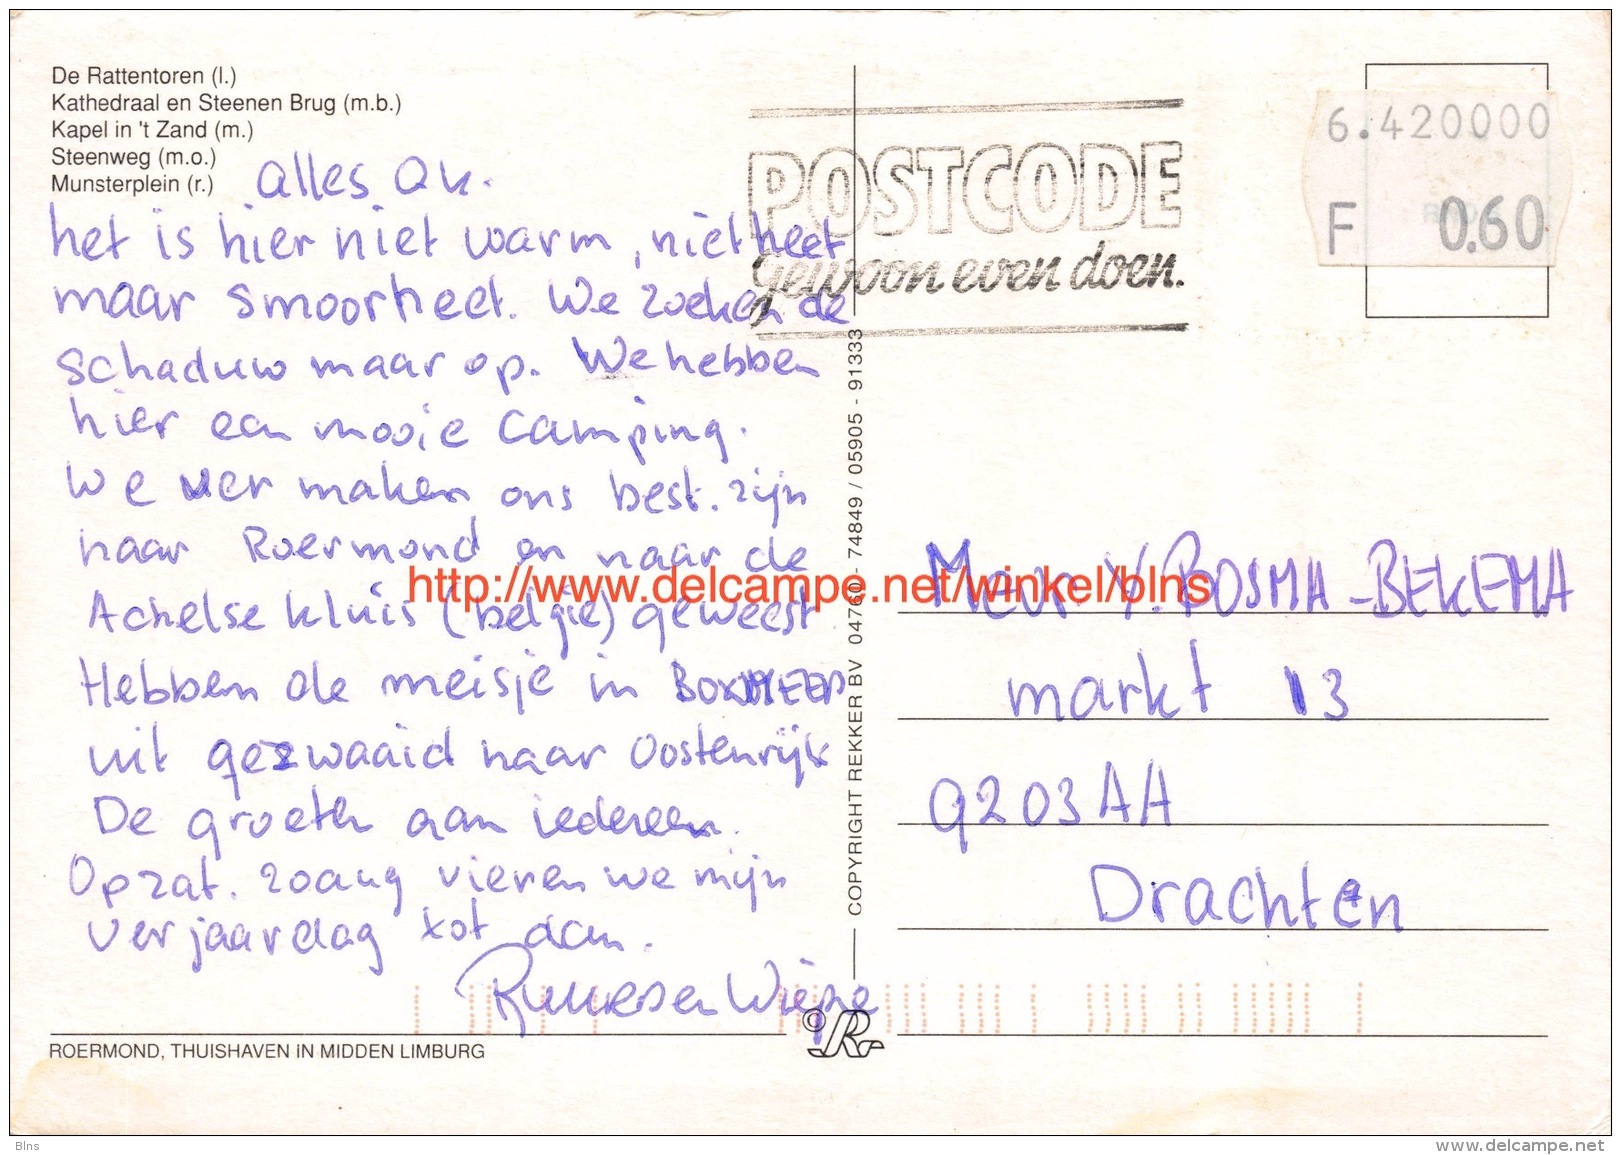 De Rattentoren (l.)
Kathedraal en Steenen Brug (m.b.)
Kapel in 't Zand (m.)
Steenweg (m.o.)
Munsterplein (r.)
alles Ok.
het is hier niet warm, niet heet
maar smoorheet. We zoeken de
schaduw maar op. We hebben
hier een mooie camping.
We vermaken ons best. zijn
naar Roermond en naar de
Achelse kluis (belgie) geweest
Hebben de meisje in BOXMEER
uit gezwaaid naar Oostenrijk
De groeten aan iedereen.
Op zat. 20 aug vieren we mijn
verjaardag tot dan.
en Wiepie
ROERMOND, THUISHAVEN iN MIDDEN LIMBURG
COPYRIGHT REKKER BV 04760 - 74849 / 05905 - 91333
©R
POSTCODE
gewoon even doen.
6.420000
F 0.60
Mevr Y. BOSMA-BEKEMA
markt 13
9203AA
Drachten
http://www.delcampe.net/winkel/blns
Blns
http://www.delcampe.net